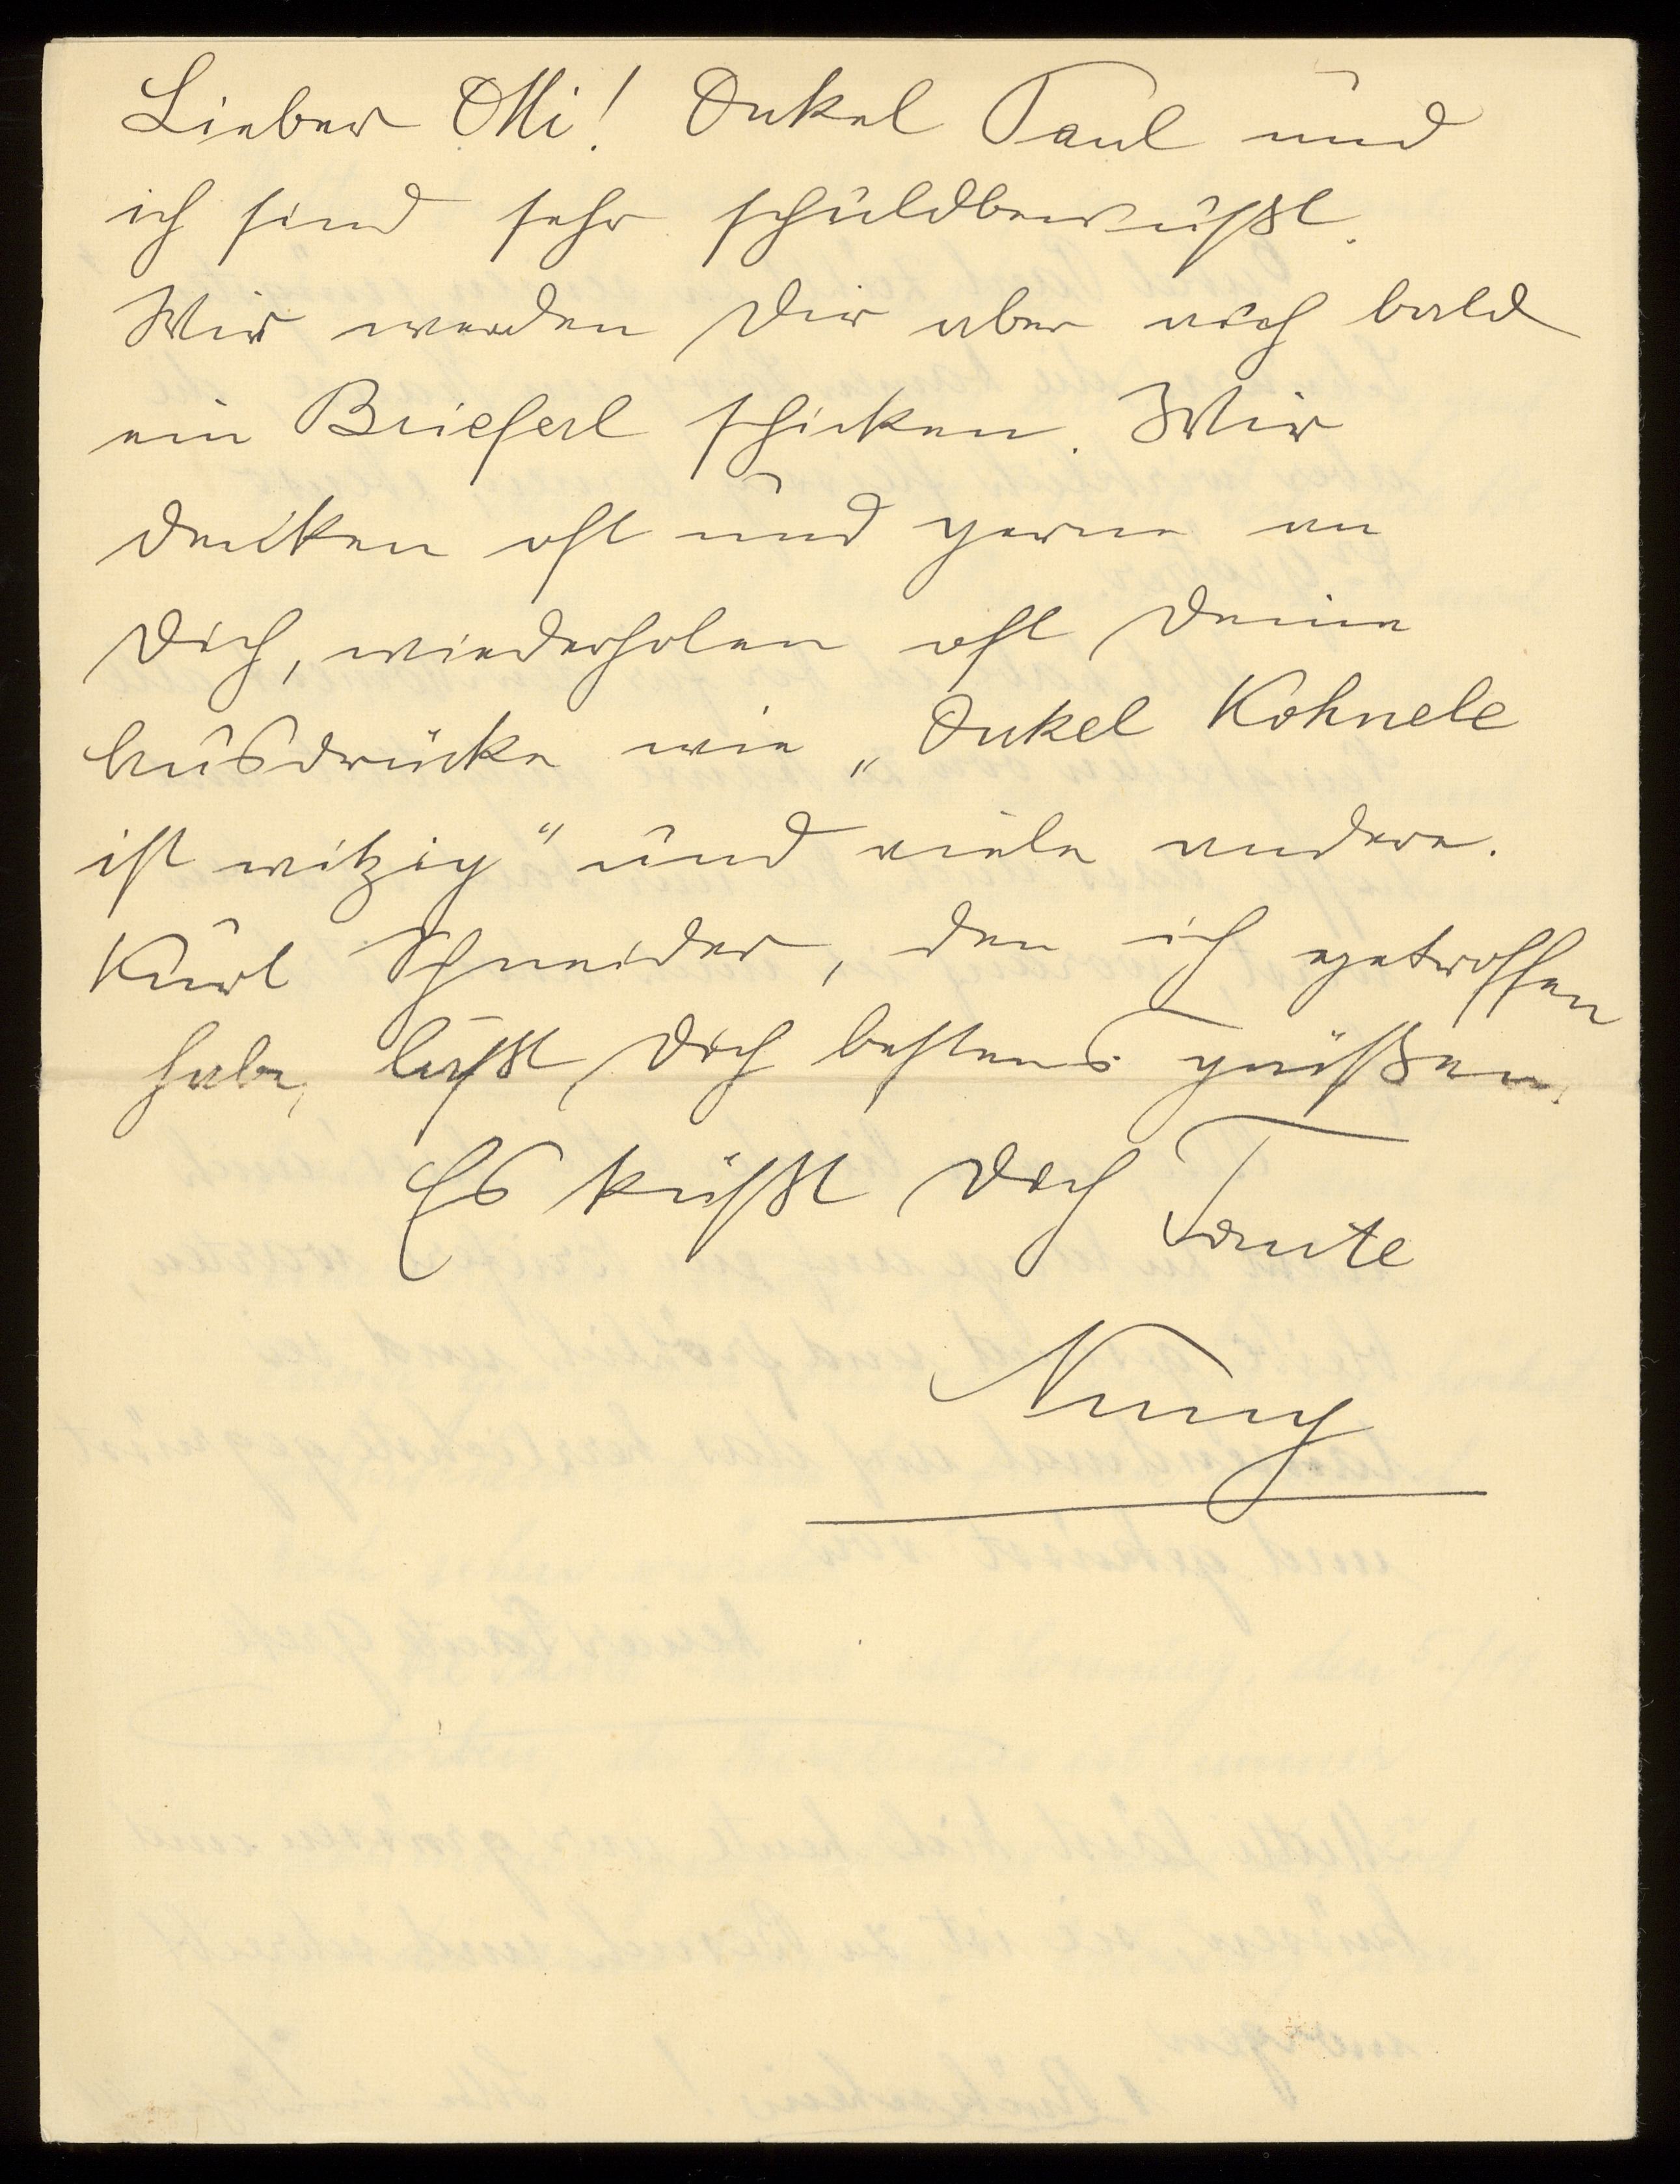 Lieber Otti! Onkel Paul und
ich sind sehr schuldbewußt.
Wir werden Dir aber auch bald
ein Brieferl schicken. Wir
denken oft und gerne an
Dich, wiederholen oft Deine
Ausdrücke wie „Onkel Kohnele
ist witzig" und viele andere.
Kurt Schneider, den ich getroffen
habe, läßt Dich bestens grüßen.
Es küßt Dich Tante